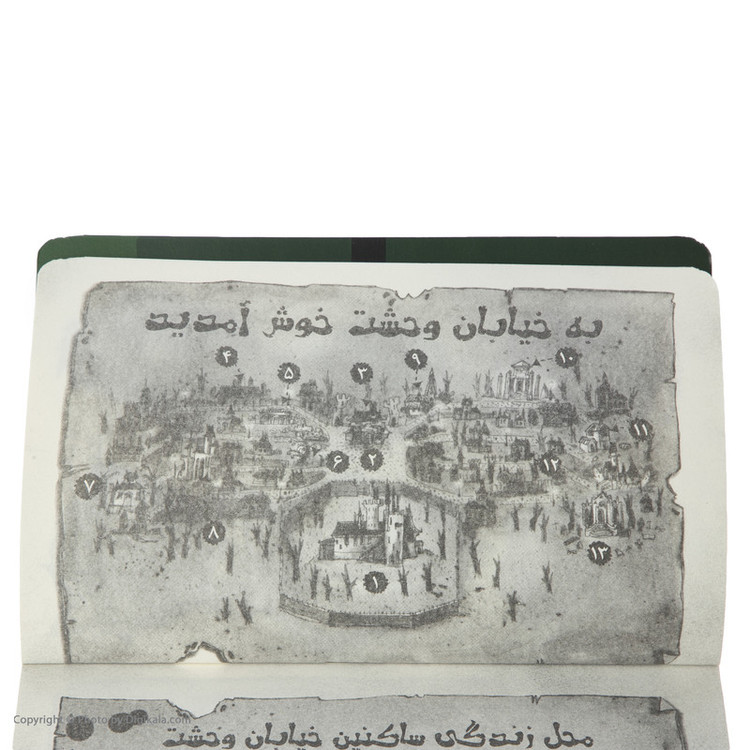 به خیابان وحشت خوش آمدید
۴
۵
۳
۹
۱۰
۱۱
۶
۲
۱۲
۷
۸
۱
۱۳
محل زندگی ساکنین خیابان وحشت
Copyright © photo by Digikala.com